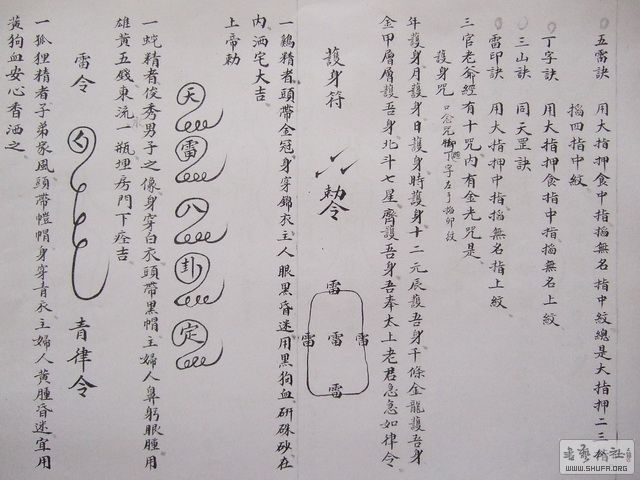 五雷訣　用大指押食中指掐無名指中紋總是大指押二三
掐四指中紋
丁字訣　用大指押食指中指掐無名上紋
三山訣　同天罡訣
雷印訣　用大指押中指掐無名指上紋
三官老爺經有十咒內有金光咒是
護身咒
年護身月護身日護身時護身十二元辰護吾身千條金龍護吾身
金甲層層護吾身北斗七星齊護吾身吾奉太上老君急急如律令
護身符
勅令
雷
雷 雷 雷
雷
一鷄精者頭帶金冠身穿錦衣主人眼黑昏迷用黑狗血研硃砂在
內洒宅大吉
上帝勅
天
雷
八
卦
定
一蛇精者俊秀男子之像身穿白衣頭帶黑帽主婦人鼻䠶眼腫用
雄黃五錢東流一瓶埋房門下痊吉
雷令
青律令
一狐狸精者子弟家風頭帶氊帽身穿青衣主婦人黃腫昏迷宜用
黃狗血安心香洒之
WWW.SHUFA.ORG